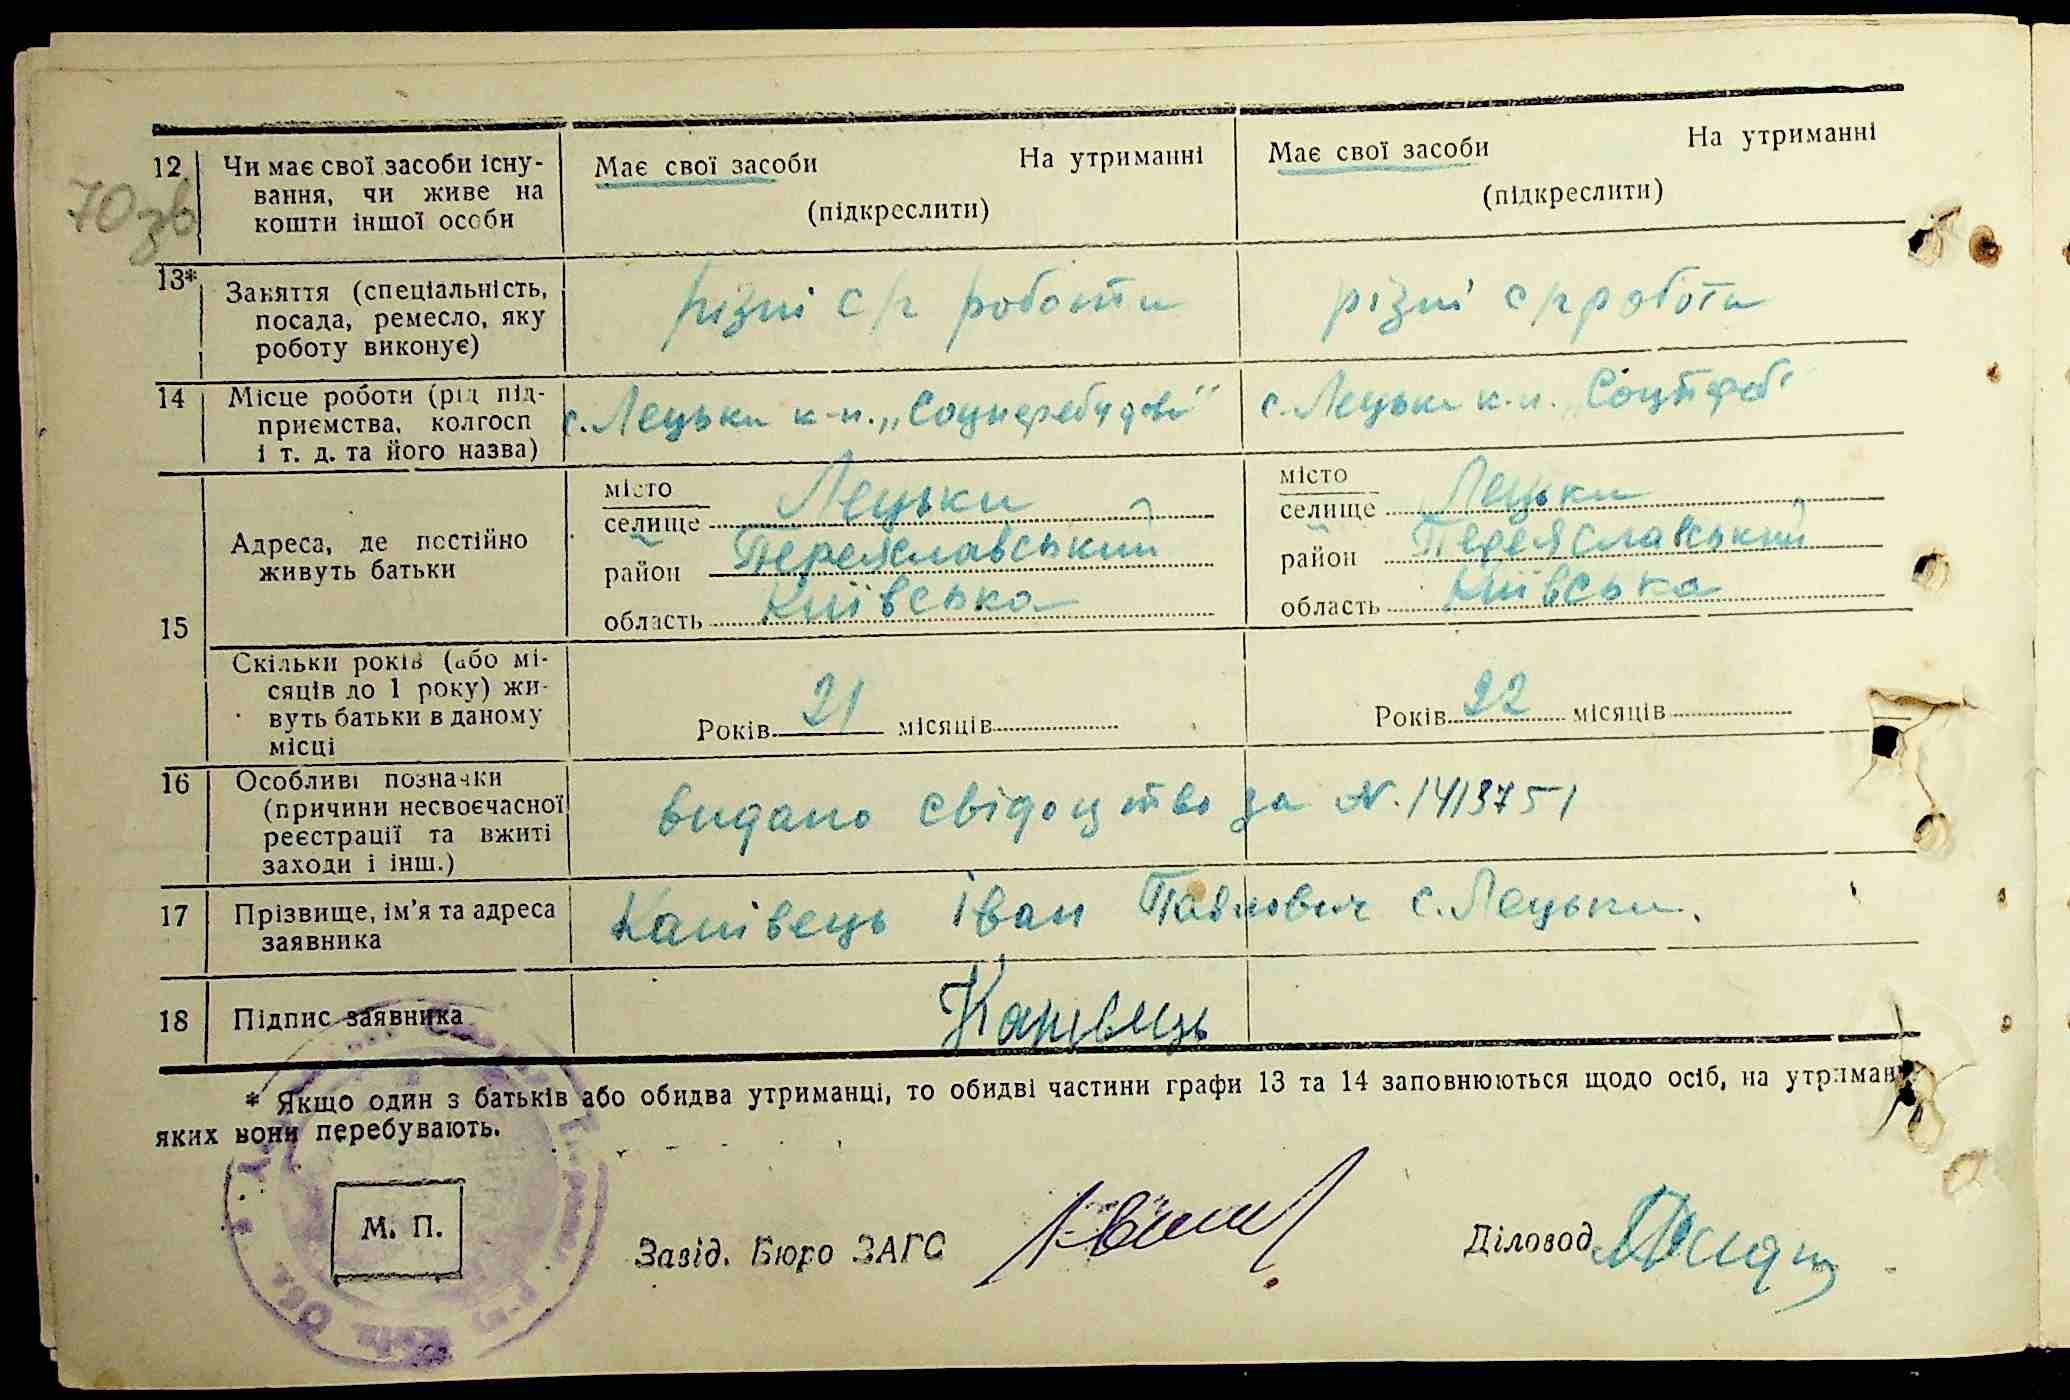 70зв
12 Чи має свої засоби існу-
вання, чи живе на
кошти іншої особи
Має свої засоби На утриманні
(підкреслити)
Має свої засоби На утриманні
(підкреслити)
13* Заняття (спеціальність,
посада, ремесло, яку
роботу виконує)
різні с/г роботи
різні с/г роботи
14 Місце роботи (рід під-
приємства, колгосп
і т. д. та його назва)
с. Лецьки к-п. „Соцперебудова"
с. Лецьки к.п. „Соцпереб"
15
Адреса, де постійно
живуть батьки
місто
селище Лецьки
район Переяславський
область Київська
місто
селище Лецьки
район Переяславський
область Київська
Скільки років (або мі-
сяців до 1 року) жи-
вуть батьки в даному
місці
Років 21 місяців
Років 22 місяців
16 Особливі позначки
(причини несвоєчасної
реєстрації та вжиті
заходи і інш.)
видано свідоцтво за N. 1413751
17 Прізвище, ім'я та адреса
заявника
Канівець Іван Павлович с. Лецьки.
18 Підпис заявника
Канівець
* Якщо один з батьків або обидва утриманці, то обидві частини графи 13 та 14 заповнюються щодо осіб, на утриман
яких вони перебувають.
М. П.
Завід. Бюро ЗАГС
Діловод